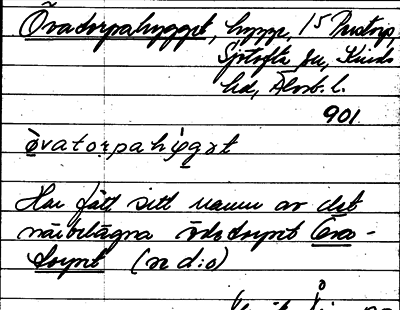 Övatorpahygget, hygge, 15 Prustorp,
Sjötofta sn, Kinds
hd, Älvsb. l.
901
òvatorpahy̨gət
Har fått sitt namn av det
närbelägna ödetorpet Öva-
torpet (se d:o)